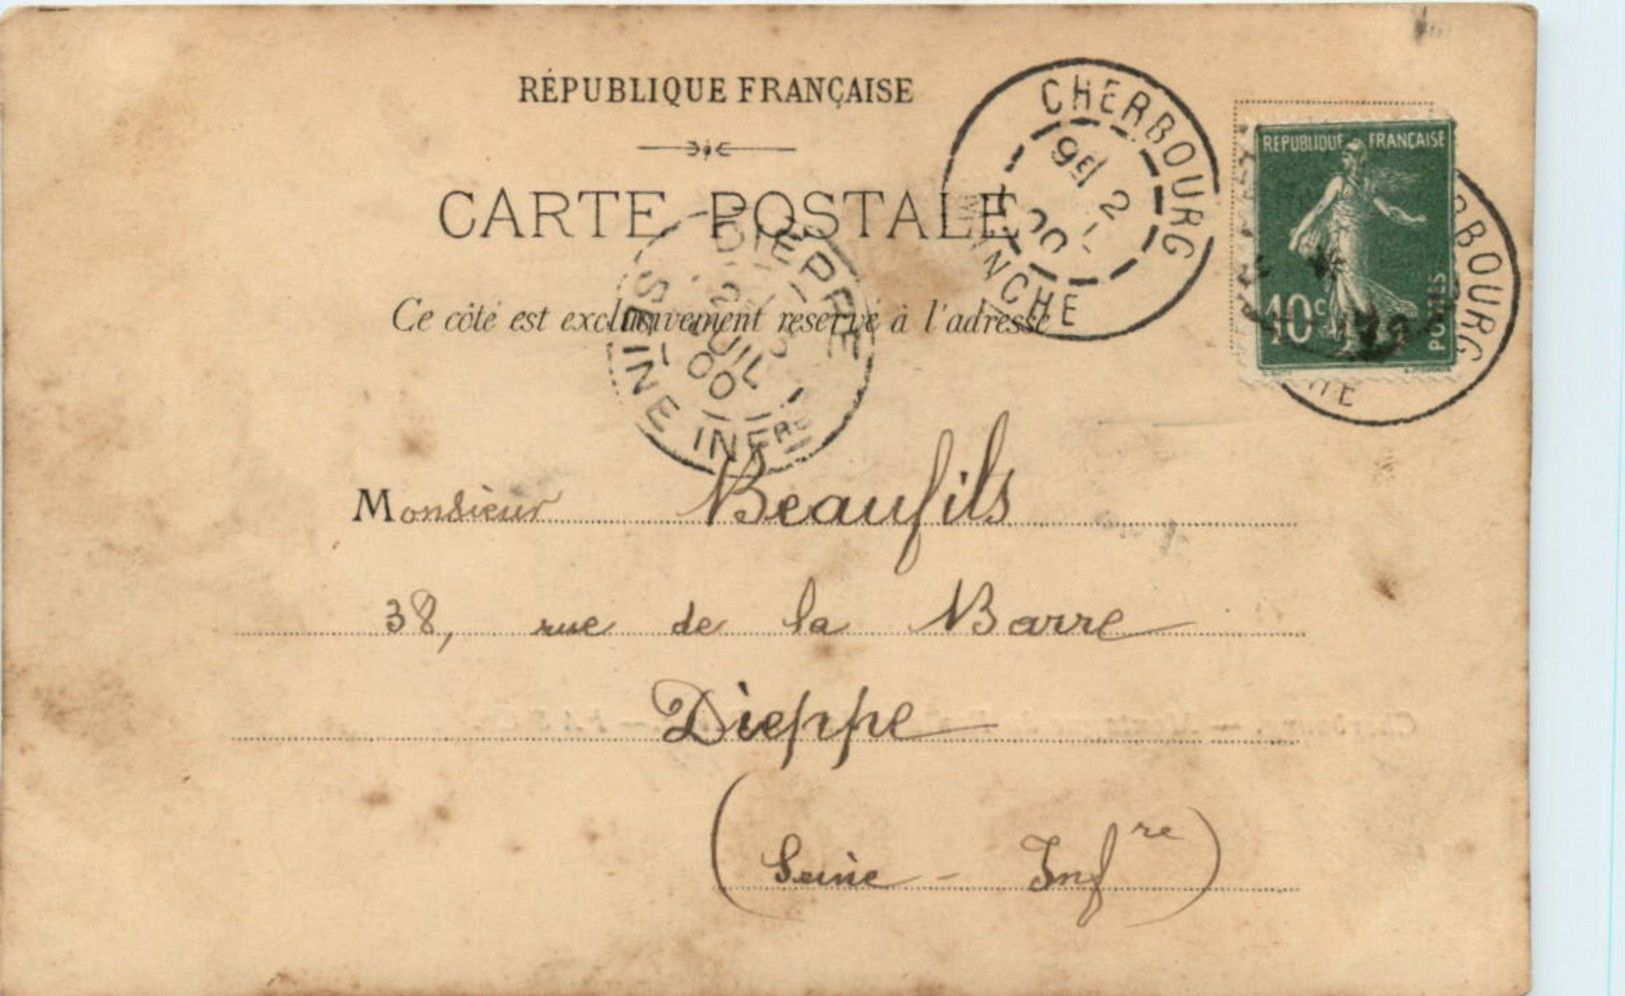 RÉPUBLIQUE FRANÇAISE
CARTE POSTALE
Ce côté est exclusivement reservé à l'adresse
CHERBOURG
MANCHE
9E 2
00
REPUBLIQUE FRANÇAISE
10c
POSTES
RBOURG
HE
DIEPPE
2
JUIL
00
SEINE INFRE
Monsieur Beaufils
38, rue de la Barre
Dieppe
(Seine - Infre)